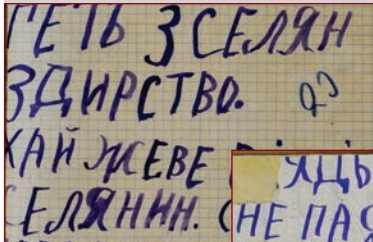 ГЕТЬ З СЕЛЯН
ЗДИРСТВО.
ХАЙ ЖЕВЕ
СЕЛЯНИН.
НЕ